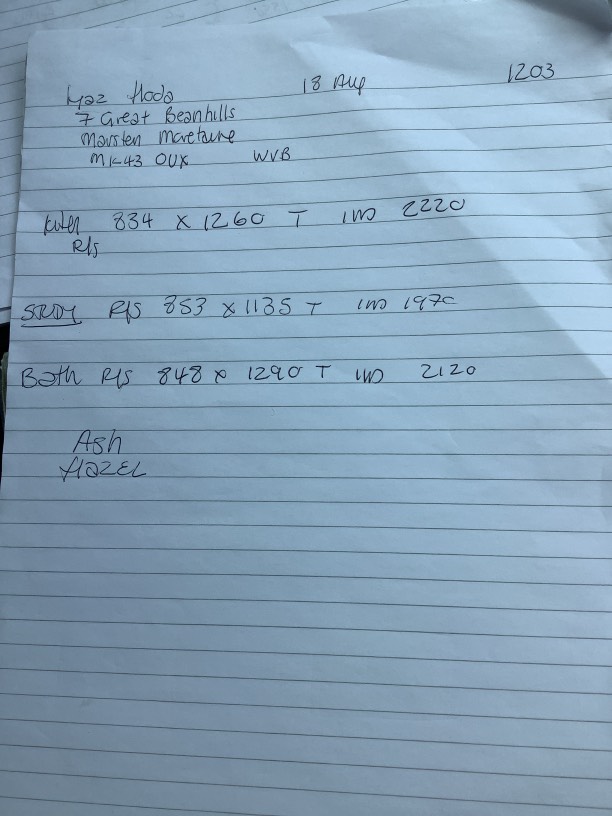 18 Aug 1203
7 Great Beanhills
Marsten Moretaine
MK43 0UX WVB
834 x 1260 T IND 2220
R/S
STUDY R/S 853 x 1135 T IND 1970
Bath R/S 848 x 1290 T IND 2120
Ash
HAZEL